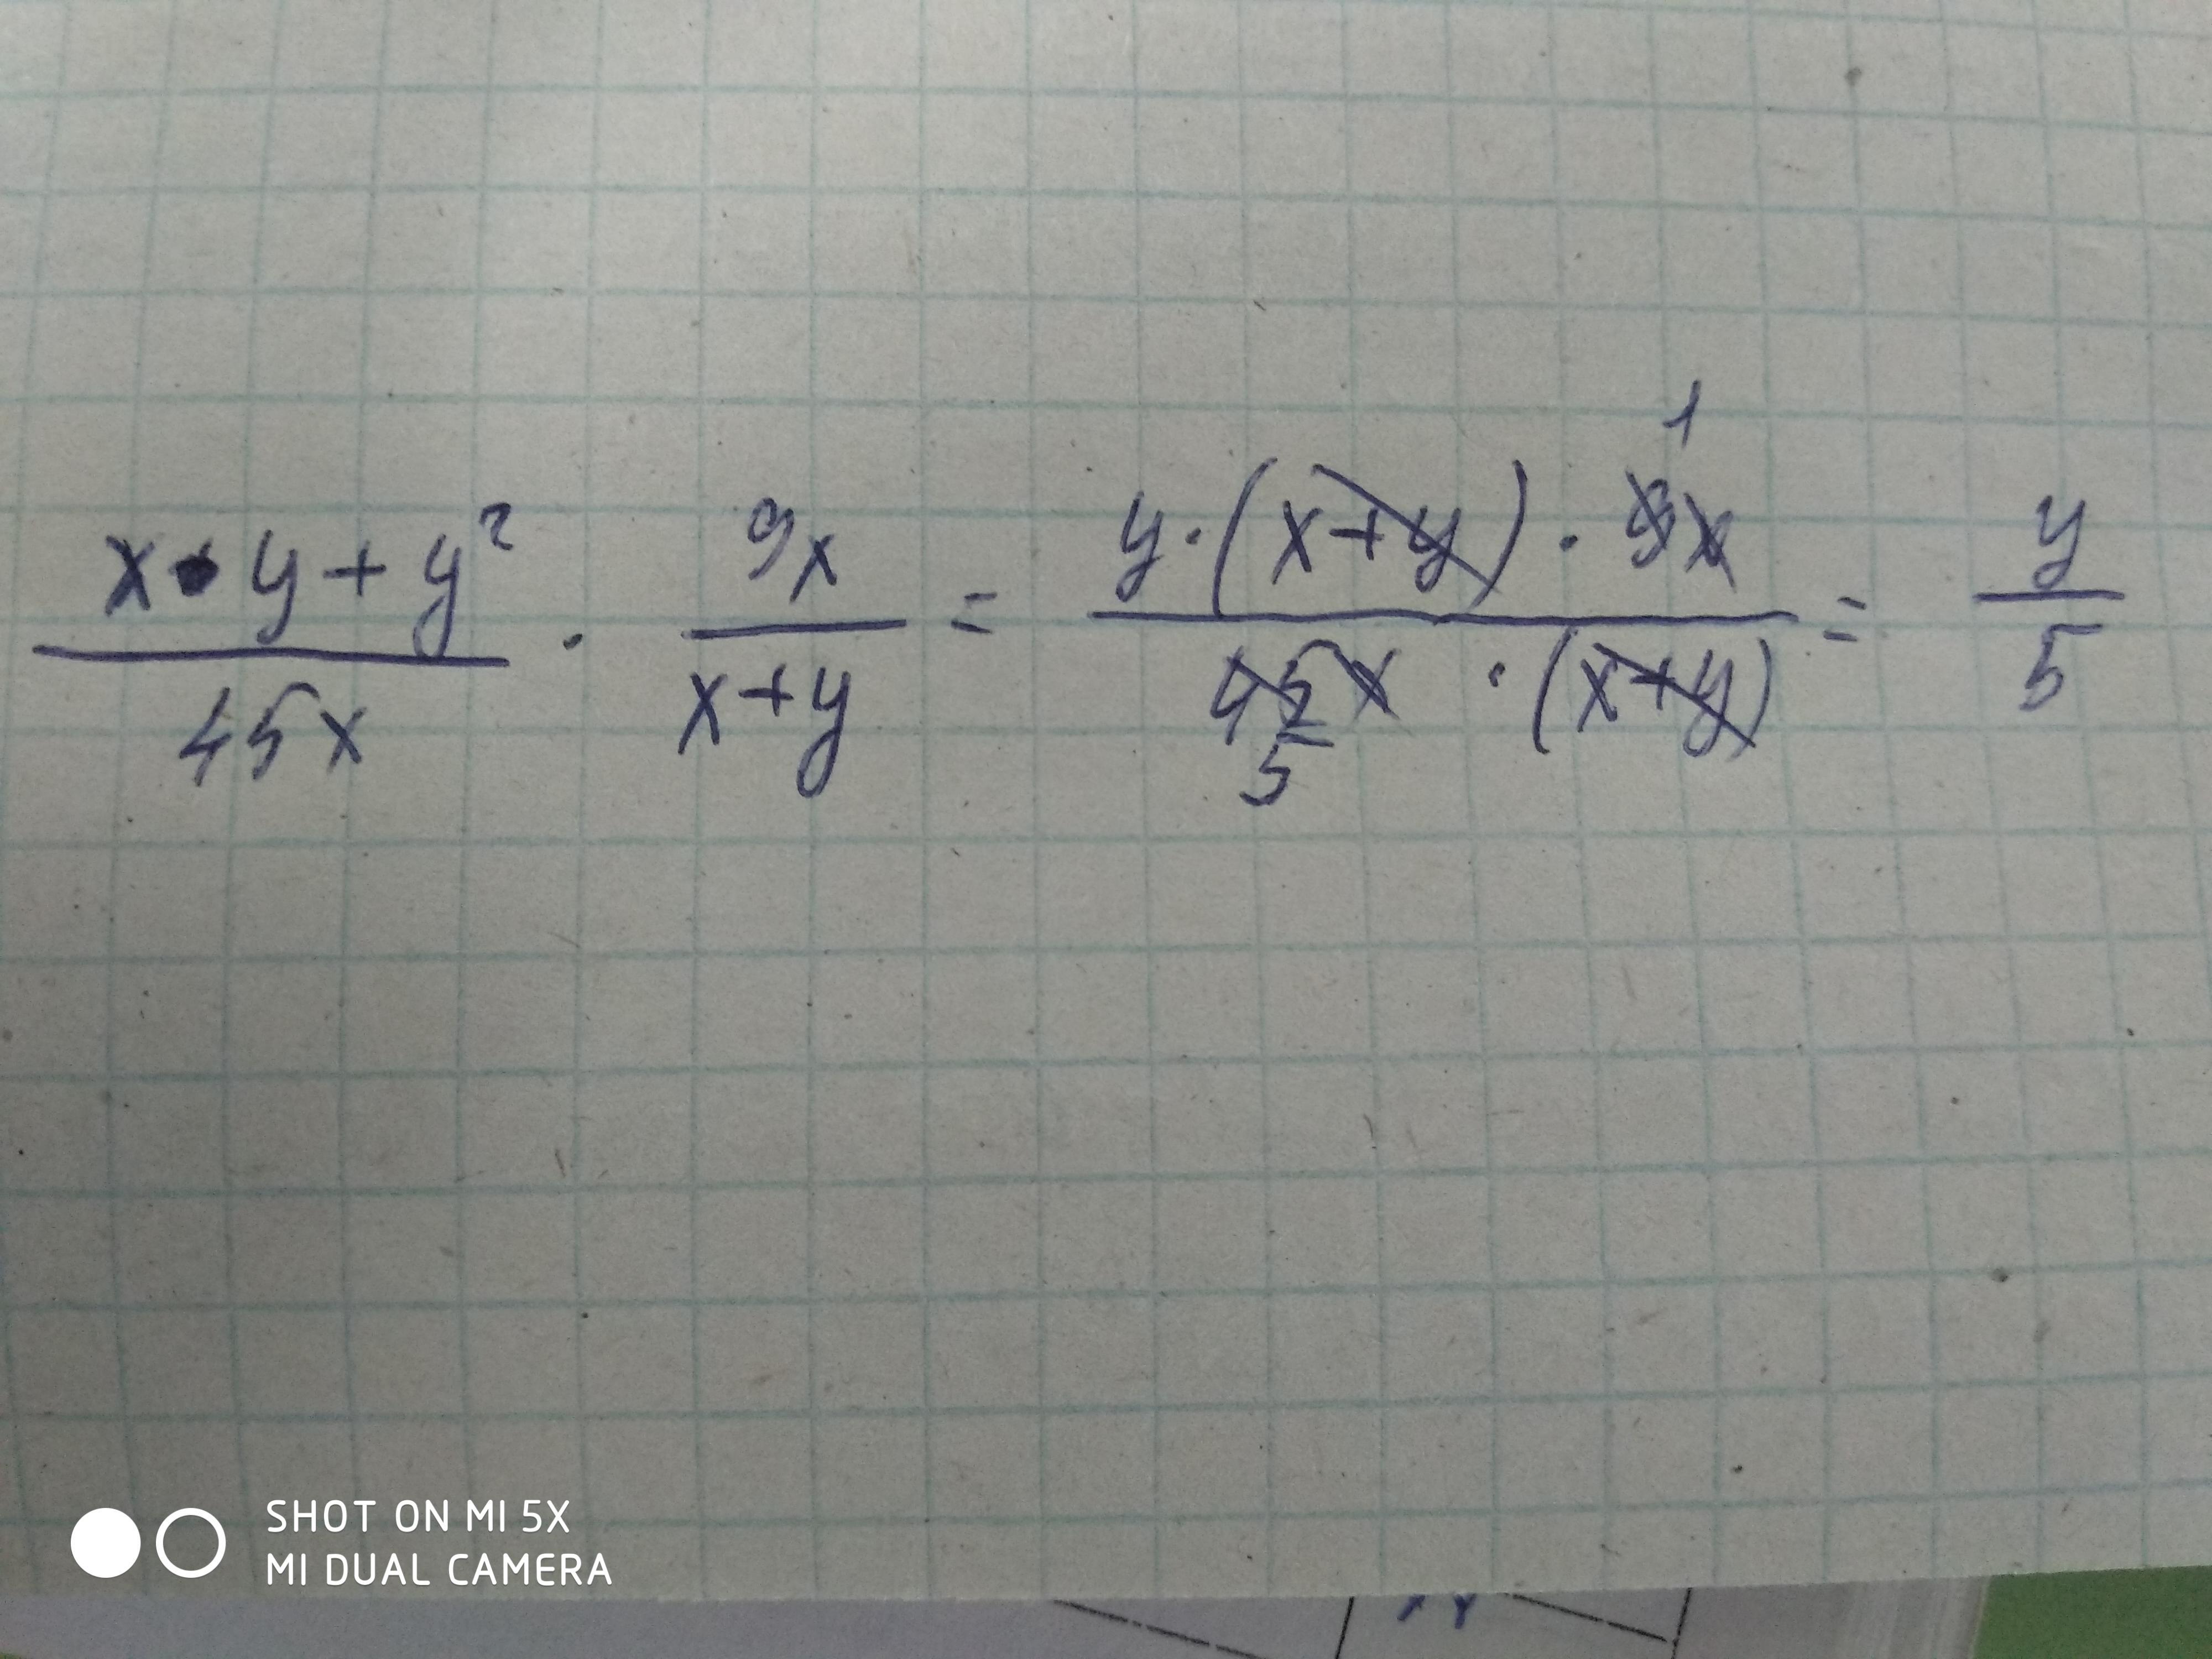 (x·y+y²)/(45x) · (9x)/(x+y) = (y·(x+y)·9x)/(45x·(x+y)) = y/5
1
5
SHOT ON MI 5X
MI DUAL CAMERA